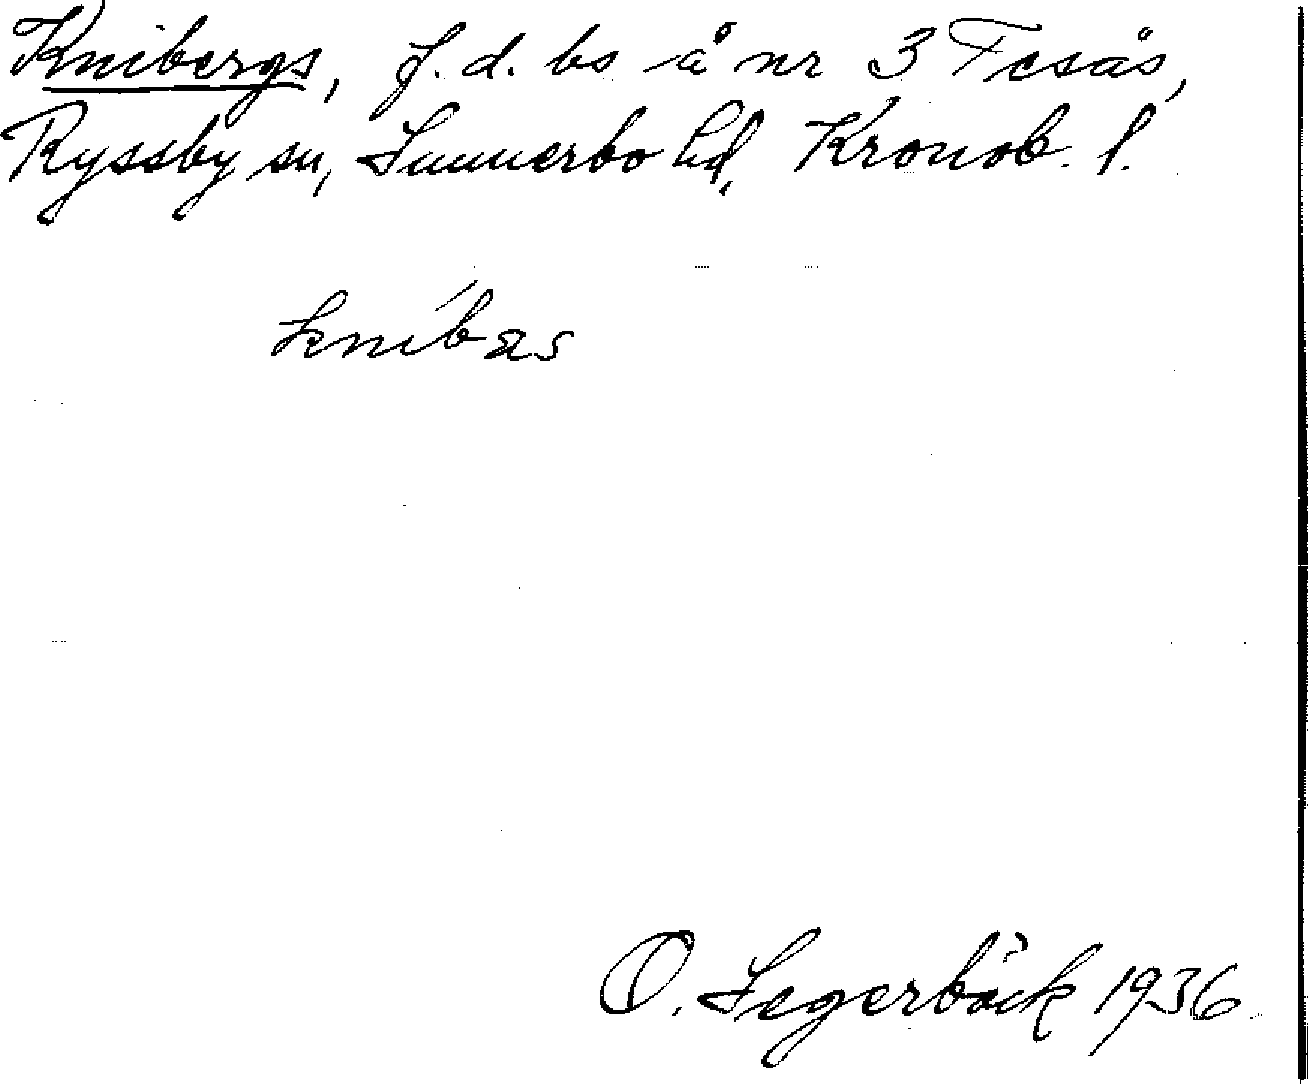 Knibergs, f.d. bs å nr 3 Tesås,
Ryssby sn, Sunnerbo hd, Kronob. l.
knibæs
O. Segerbäck 1936